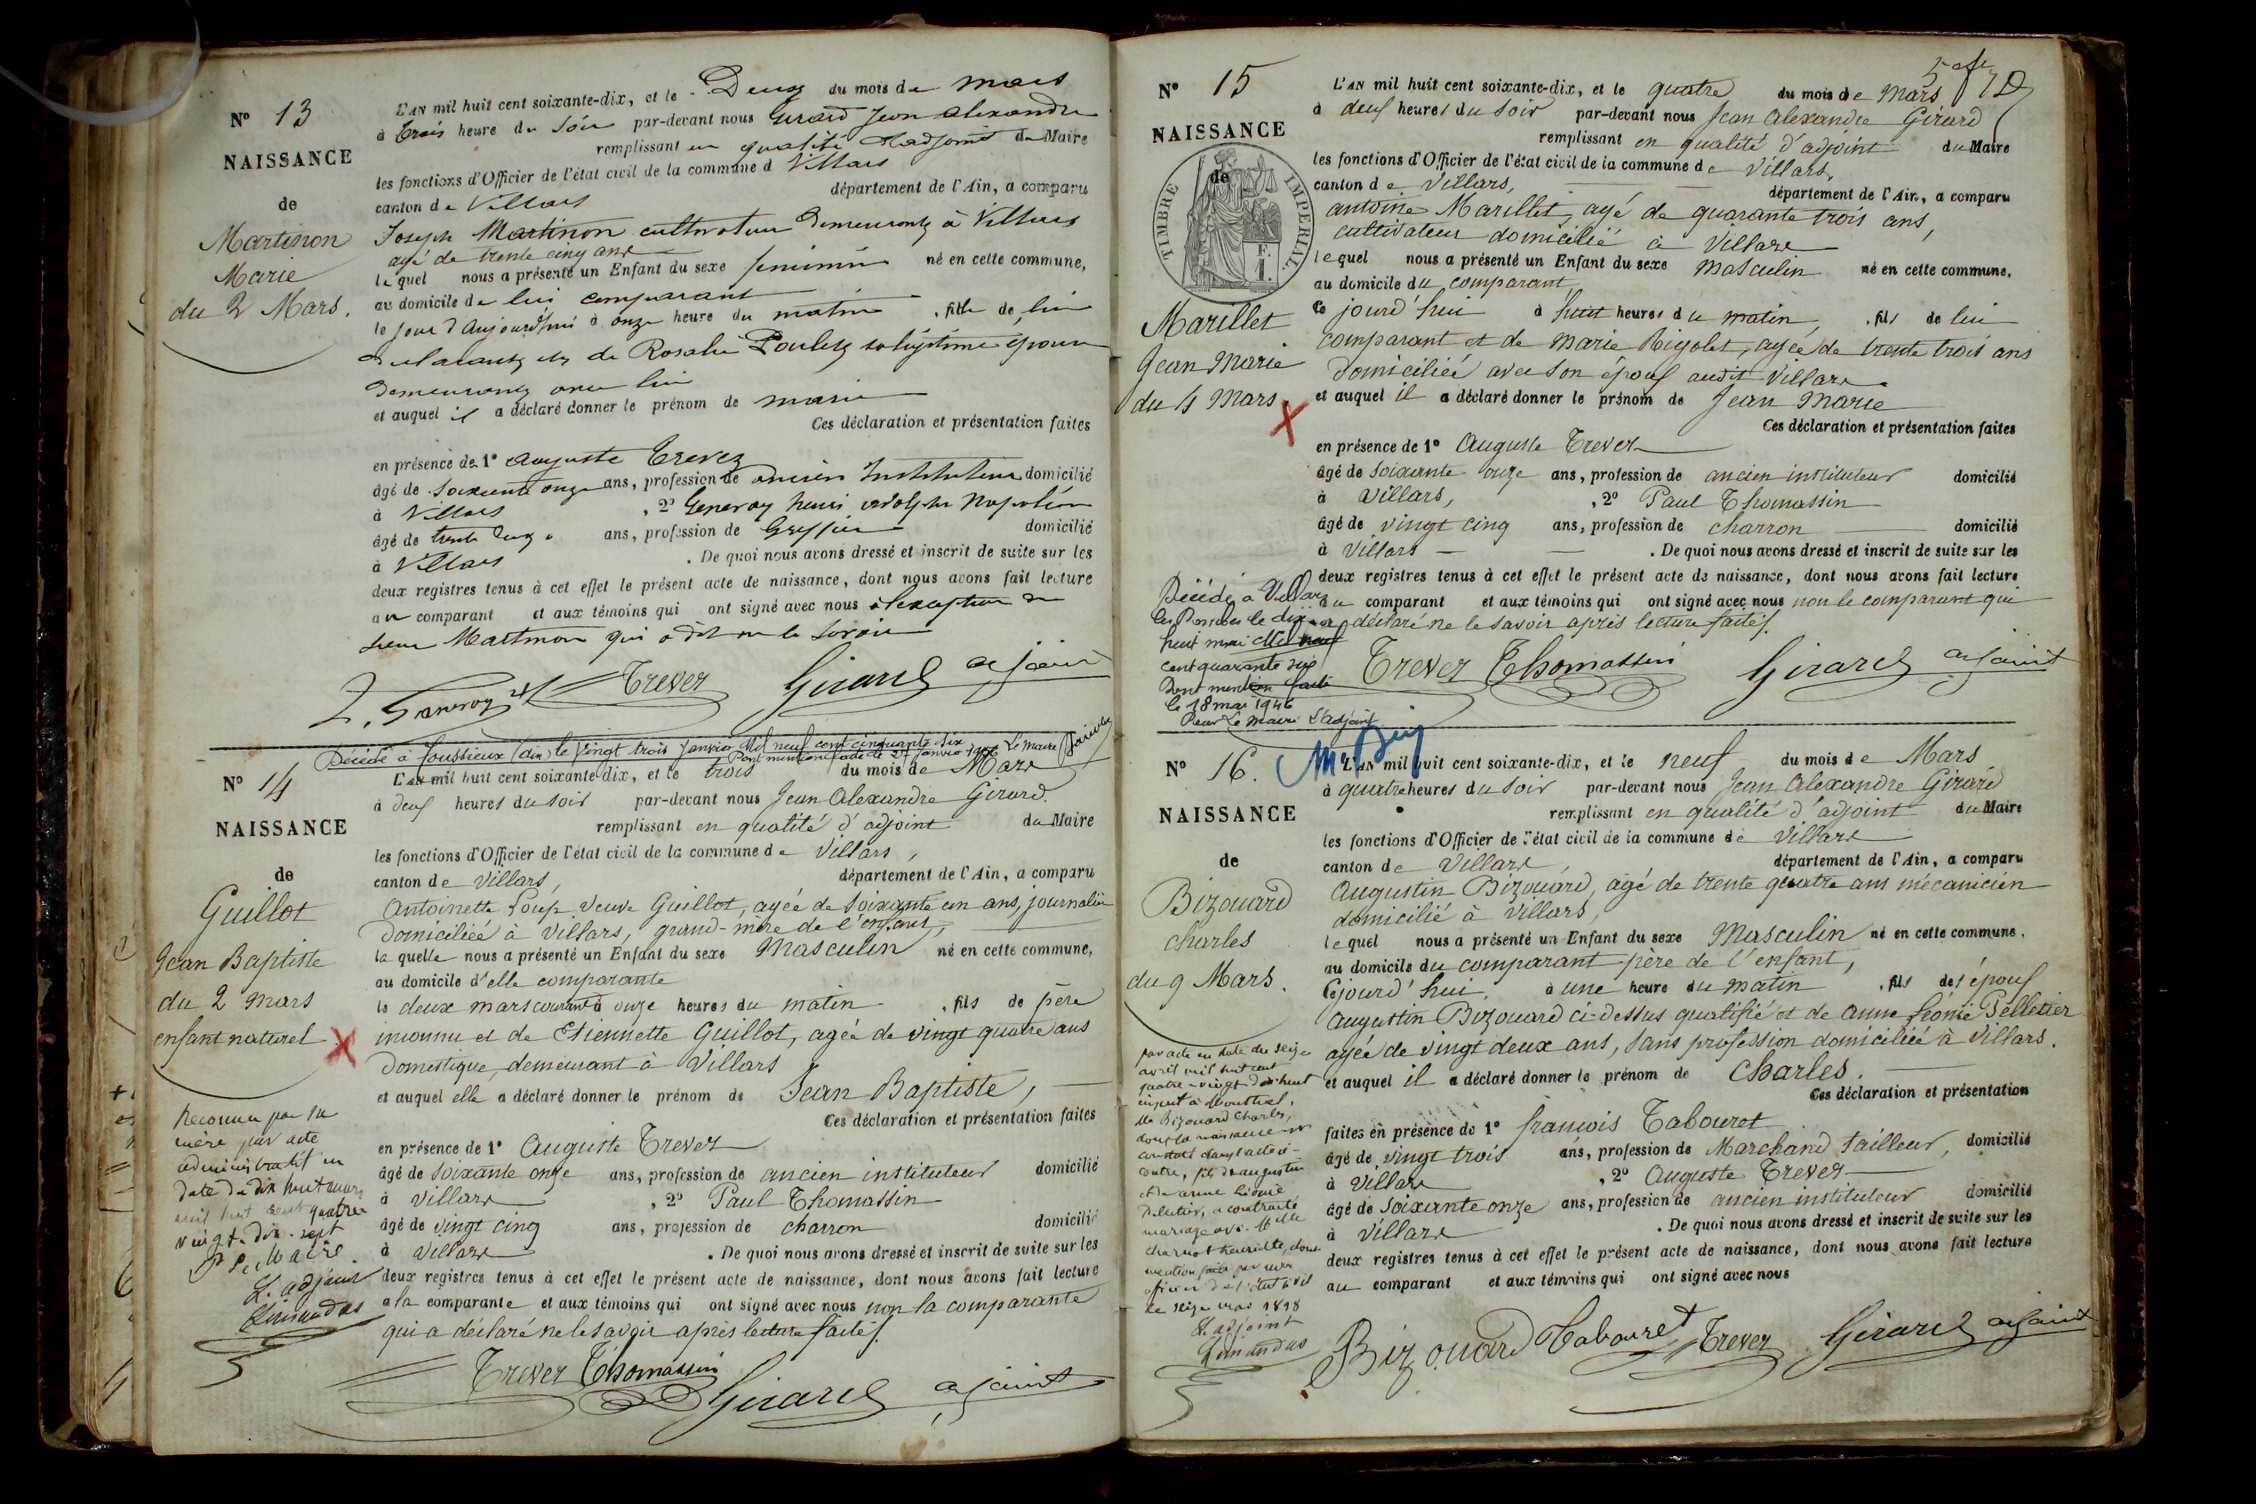 N° 13
NAISSANCE
de
Martinon
Marie
du 2 Mars.
L'AN mil huit cent soixante-dix, et le Deux du mois de mars
à trois heure du Soir par-devant nous Girard Jean alexandre
remplissant en qualité d'adjoint du Maire
les fonctions d'Officier de l'état civil de la commune d Villars
canton de Villars département de l'Ain, a comparu
Joseph Martinon cultivateur Demeurant à Villars
agé de trente cinq ans
lequel nous a présenté un Enfant du sexe feminin né en cette commune,
au domicile de lui comparant
le jour d'aujourd'hui à onze heure du matin, fille de lui
declarant et de Rosalie Poulet sa légitime épouse
Demeurant avec lui
et auquel il a déclaré donner le prénom de marie
Ces déclaration et présentation faites
en présence de 1° auguste Trever
âgé de soixante onze ans, profession de ancien Instituteur domicilié
à Villars, 2° Genevay henri adolphe Napoléon
âgé de trente deux ans, profession de Greffier domicilié
à Villars. De quoi nous avons dressé et inscrit de suite sur les
deux registres tenus à cet effet le présent acte de naissance, dont nous avons fait lecture
au comparant et aux témoins qui ont signé avec nous à l'exception du
sieur Martinon qui a dit ne le savoir
Trever Girard adjoint
Décédé à (Ain) le vingt trois Janvier Mil neuf cent cinquante dix Le Maire
N° 14
NAISSANCE
de
Guillot
Jean Baptiste
du 2 mars
enfant naturel
Reconnu par sa
mère par acte
administratif en
date du dix huit mars
mil huit cent quatre
vingt-dix-sept
P. le Maire
L. adjoint
L'AN mil huit cent soixante-dix, et le trois du mois de Mars
à deux heures du soir par-devant nous Jean Alexandre Girard
remplissant en qualité d'adjoint du Maire
les fonctions d'Officier de l'état civil de la commune de Villars,
canton de Villars, département de l'Ain, a comparu
Antoinette Loup veuve Guillot, agée de soixante un ans, journalière
domiciliée à Villars, grand-mère de l'enfant,
la quelle nous a présenté un Enfant du sexe Masculin né en cette commune,
au domicile d'elle comparante
le deux mars courant à onze heures du matin, fils de père
inconnu et de Etiennette Guillot, agée de vingt quatre ans
domestique, demeurant à Villars
et auquel elle a déclaré donner le prénom de Jean Baptiste,
Ces déclaration et présentation faites
en présence de 1° Auguste Trever
âgé de soixante onze ans, profession de ancien instituteur domicilié
à Villars, 2° Paul Thomassin
âgé de vingt cinq ans, profession de charron domicilié
à Villars. De quoi nous avons dressé et inscrit de suite sur les
deux registres tenus à cet effet le présent acte de naissance, dont nous avons fait lecture
a la comparante et aux témoins qui ont signé avec nous non la comparante
qui a déclaré ne le savoir après lecture faite.
Trever Thomassin Girard adjoint
N° 15
NAISSANCE
de
TIMBRE IMPERIAL
Marillet
Jean Marie
du 4 Mars
Décédé à Villars
les Dombes le dix
huit mai Mil neuf
cent quarante six
Dont mention faite
le 18 mai 1946
Pour Le Maire L'adjoint
L'AN mil huit cent soixante-dix, et le quatre du mois de Mars
à deux heures du soir par-devant nous Jean Alexandre Girard
remplissant en qualité d'adjoint du Maire
les fonctions d'Officier de l'état civil de la commune de Villars,
canton de Villars, département de l'Ain, a comparu
antoine Marillet, agé de quarante trois ans,
cultivateur domicilié à Villars
lequel nous a présenté un Enfant du sexe Masculin né en cette commune,
au domicile du comparant
Ce jourd'hui à huit heures du matin, fils de lui
comparant et de Marie Rigolet, agée de trente trois ans
domiciliée avec son époux audit Villars
et auquel il a déclaré donner le prénom de Jean Marie
Ces déclaration et présentation faites
en présence de 1° Auguste Trever
âgé de soixante onze ans, profession de ancien instituteur domicilié
à Villars, 2° Paul Thomassin
âgé de vingt cinq ans, profession de charron domicilié
à Villars. De quoi nous avons dressé et inscrit de suite sur les
deux registres tenus à cet effet le présent acte de naissance, dont nous avons fait lecture
au comparant et aux témoins qui ont signé avec nous non le comparant qui
a déclaré ne le savoir après lecture faite.
Trever Thomassin Girard adjoint
N° 16.
NAISSANCE
de
Bizouard
charles
du 9 Mars.
par acte en date du seize
avril mil huit cent
quatre-vingt dix huit
inscrit à
de Bizouard Charles,
dont la naissance est
constatée dans l'acte ci-
contre, fils de augustin
et de anne Léonie
Pelletier, a contracté
mariage avec Melle
Charnot Henriette, dont
mention faite par nous
officier de l'état civil
le seize mai 1898
L. adjoint
L'AN mil huit cent soixante-dix, et le neuf du mois de Mars
à quatre heures du soir par-devant nous Jean Alexandre Girard
remplissant en qualité d'adjoint du Maire
les fonctions d'Officier de l'état civil de la commune de Villars
canton de Villars, département de l'Ain, a comparu
Augustin Bizouard, agé de trente quatre ans mécanicien
domicilié à Villars,
lequel nous a présenté un Enfant du sexe Masculin né en cette commune,
au domicile du comparant père de l'enfant,
Cejourd'hui, à une heure du matin, fils des époux
Augustin Bizouard ci-dessus qualifié et de Anne Léonie Pelletier
agée de vingt deux ans, sans profession domiciliée à Villars.
et auquel il a déclaré donner le prénom de Charles.
Ces déclaration et présentation
faites en présence de 1° françois Tabouret
âgé de vingt trois ans, profession de Marchand tailleur, domicilié
à Villars, 2° Auguste Trever
âgé de soixante onze ans, profession de ancien instituteur domicilié
à Villars. De quoi nous avons dressé et inscrit de suite sur les
deux registres tenus à cet effet le présent acte de naissance, dont nous avons fait lecture
au comparant et aux témoins qui ont signé avec nous
Bizouard Tabouret Trever Girard adjoint